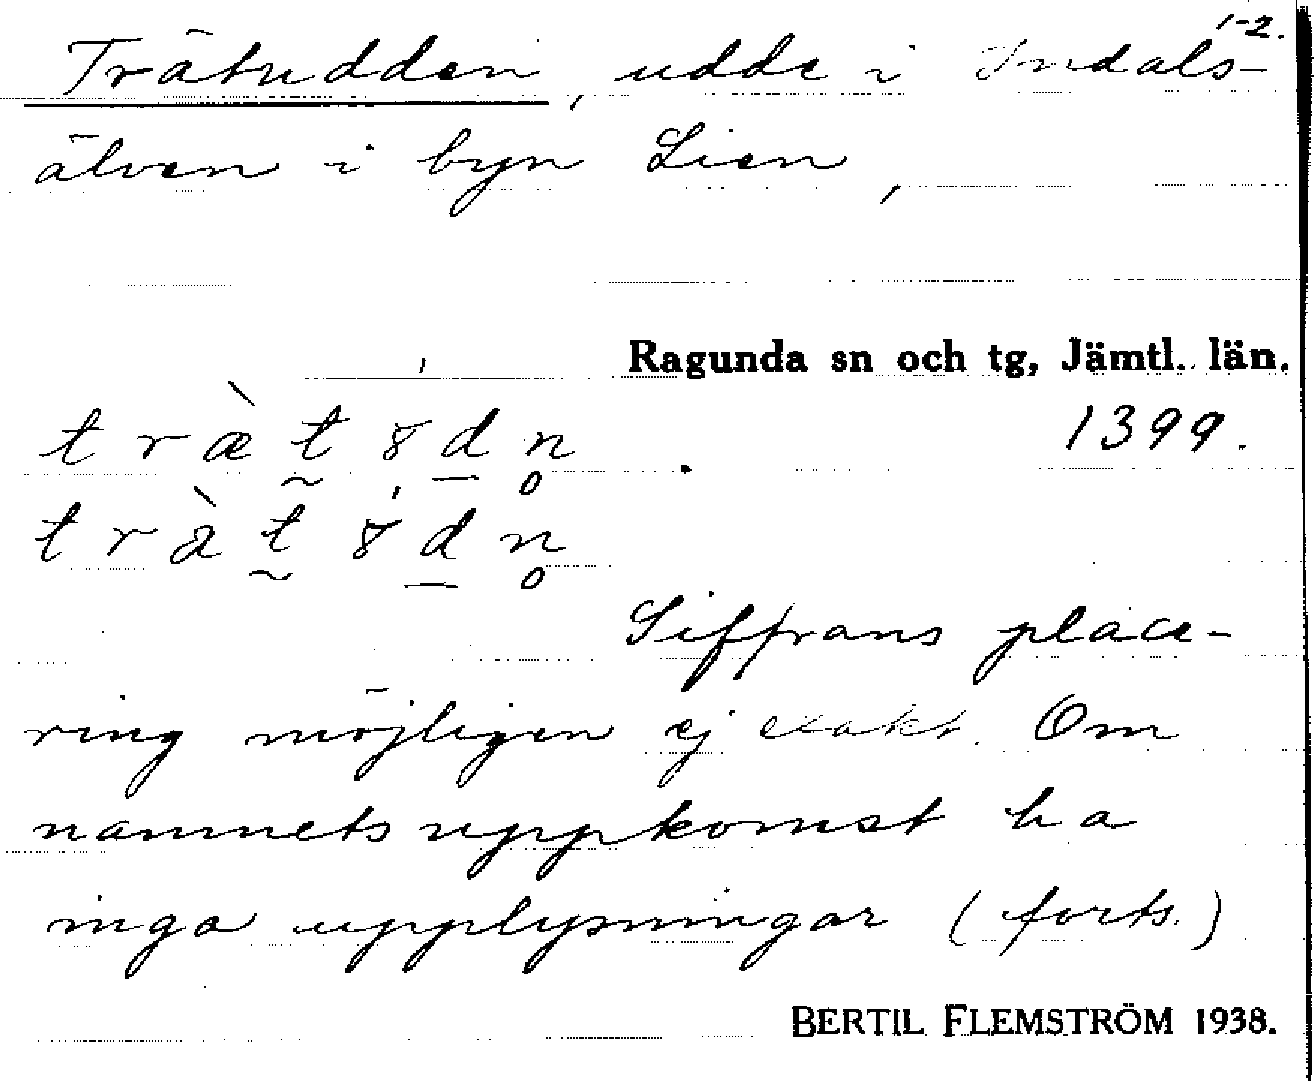 1-2.
Trätudden, udde i Indals-
älven i byn Lien,
Ragunda sn och tg, Jämtl. län.
træ̀t8dn̥ . 1399.
tràt8dn̥
Siffrans place-
ring möjligen ej exakt. Om
namnets uppkomst ha
inga upplysningar (forts.)
BERTIL FLEMSTRÖM 1938.